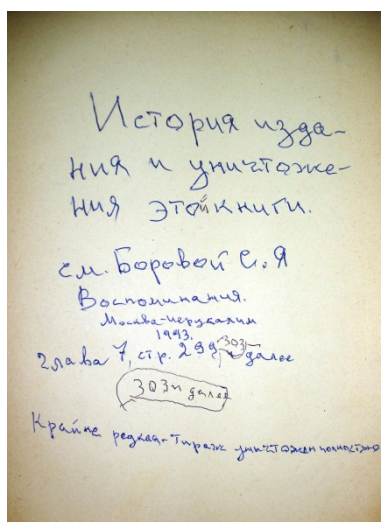 История изда-
ния и уничтоже-
ния этой книги.
см. Боровой С.Я
Воспоминания.
Москва-иерусалим
1993.
Глава 7, стр. 299 303 и далее
303 и далее
Крайне редкая-Тираж уничтожен полностью